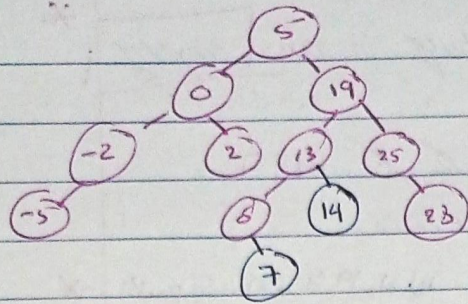 5
0 19
-2 2 13 25
-5 6 14 23
7